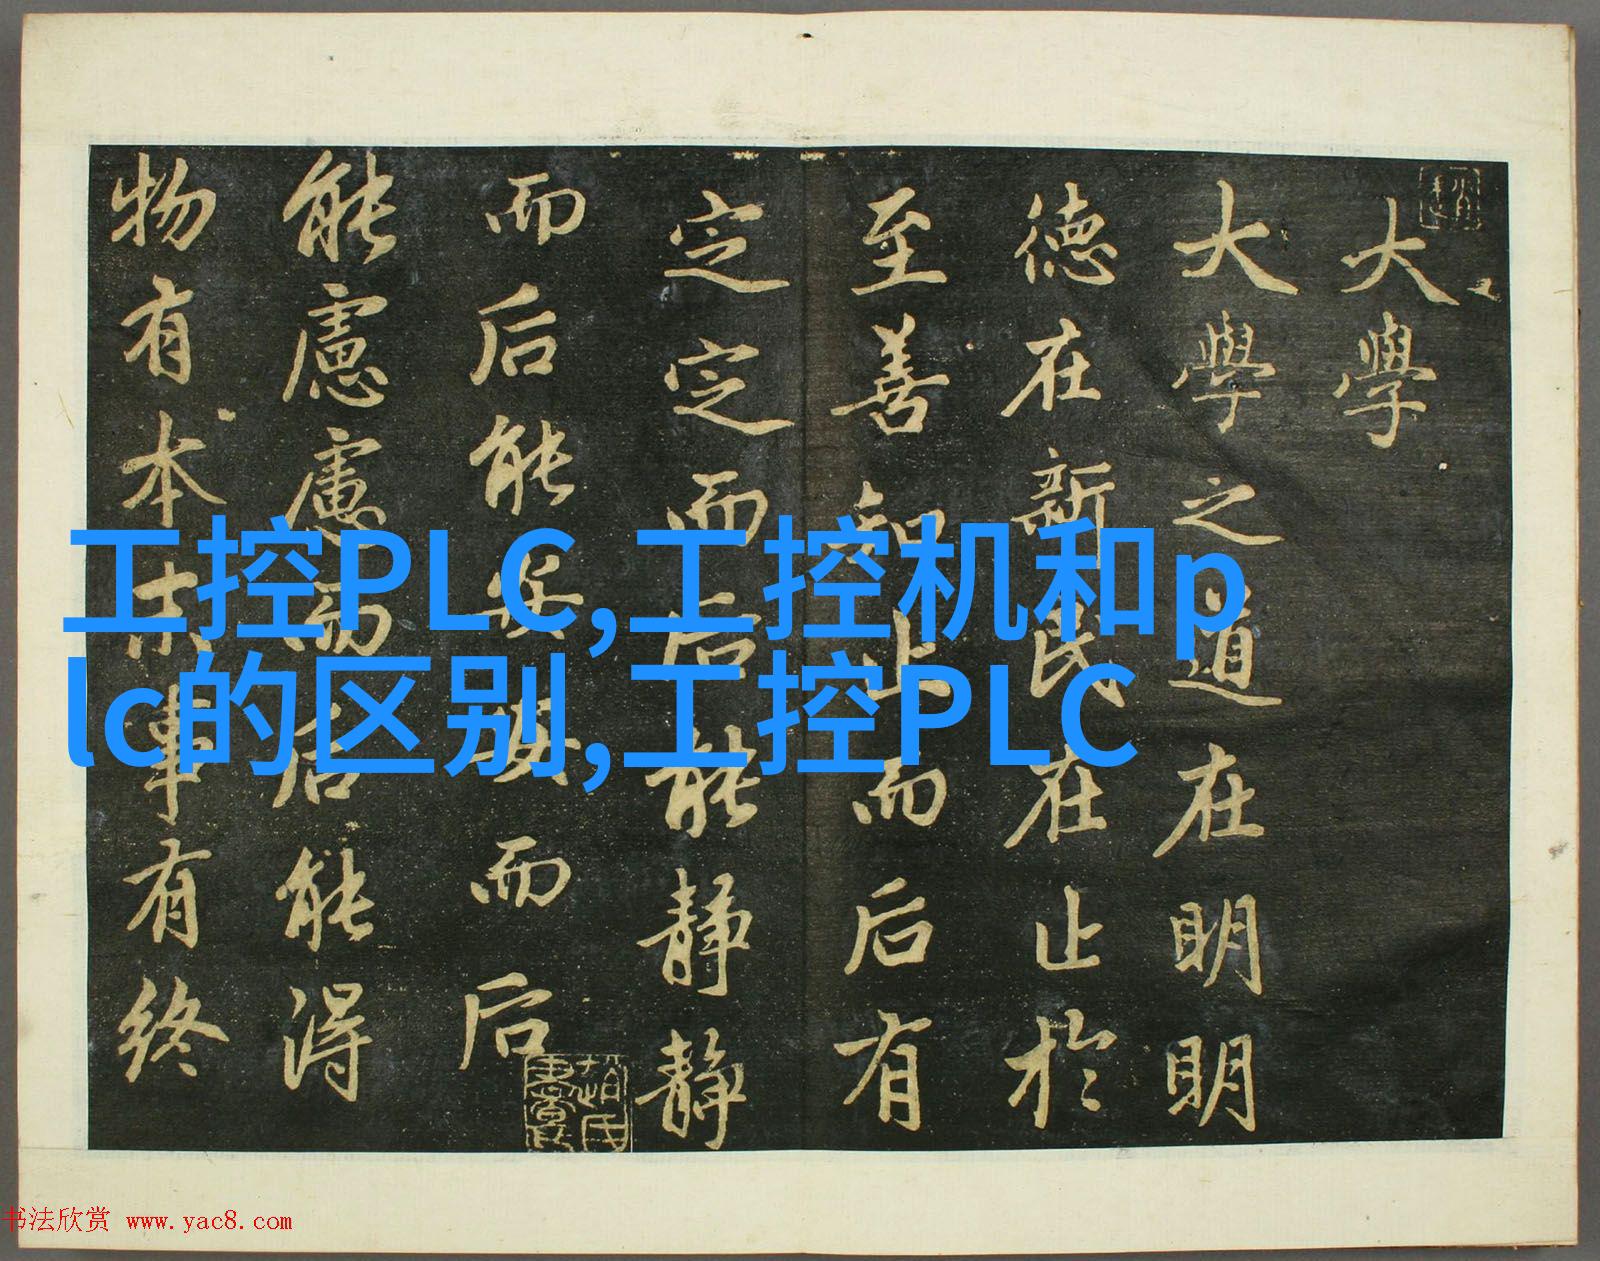 大學
大學之道在明明
徳在新民在止於
至善知止而后有
定定而后能静静
而后能安安而后
能慮慮而后能得
物有本末事有終
工控PLC,工控机和p
lc的区别,工控PLC
书法欣赏 www.yac8.com